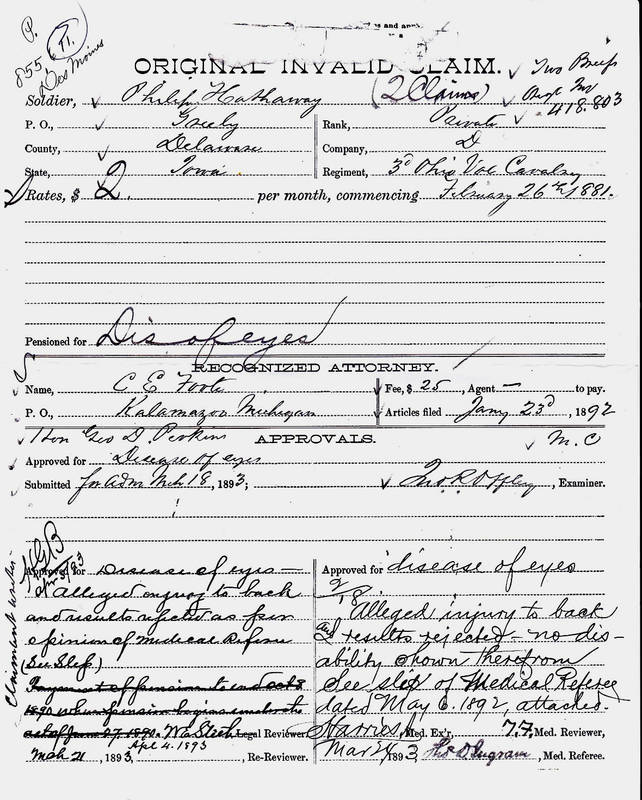 P.
855
Des Moines
ORIGINAL INVALID CLAIM.
Two Briefs
Soldier, Philip Hathaway (2 Claims)
418.803
P. O., Greely
Rank, Private
County, Delaware
Company, D
State, Iowa
Regiment, 3d Ohio Vol Cavalry
Rates, $ 2. per month, commencing February 26th, 1881.
Pensioned for Dis of eyes
RECOGNIZED ATTORNEY.
Name, C E Foote
Fee, $ 25, Agent — to pay.
P. O., Kalamazoo Michigan
Articles filed Jany 23d, 1892
Hon Geo D. Perkins
APPROVALS.
M. C
Approved for Disease of eyes
Submitted for adm Mch 18, 1893;
, Examiner.
Approved for Disease of eyes —
Alleged injury to back
and results rejected as per
opinion of Medical Referee
(See Slip)
Legal Reviewer
Apl 4. 1893
Mch 21, 1893, Re-Reviewer.
Claimant writes
Approved for disease of eyes
2/18.
Alleged injury to back
and results rejected – no dis-
ability shown therefrom
See slip of Medical Referee
dated May 6. 1892, attached.
Harries, Med. Ex'r, 77, Med. Reviewer,
Mar 24, 1893, Thos D. Ingram, Med. Referee.